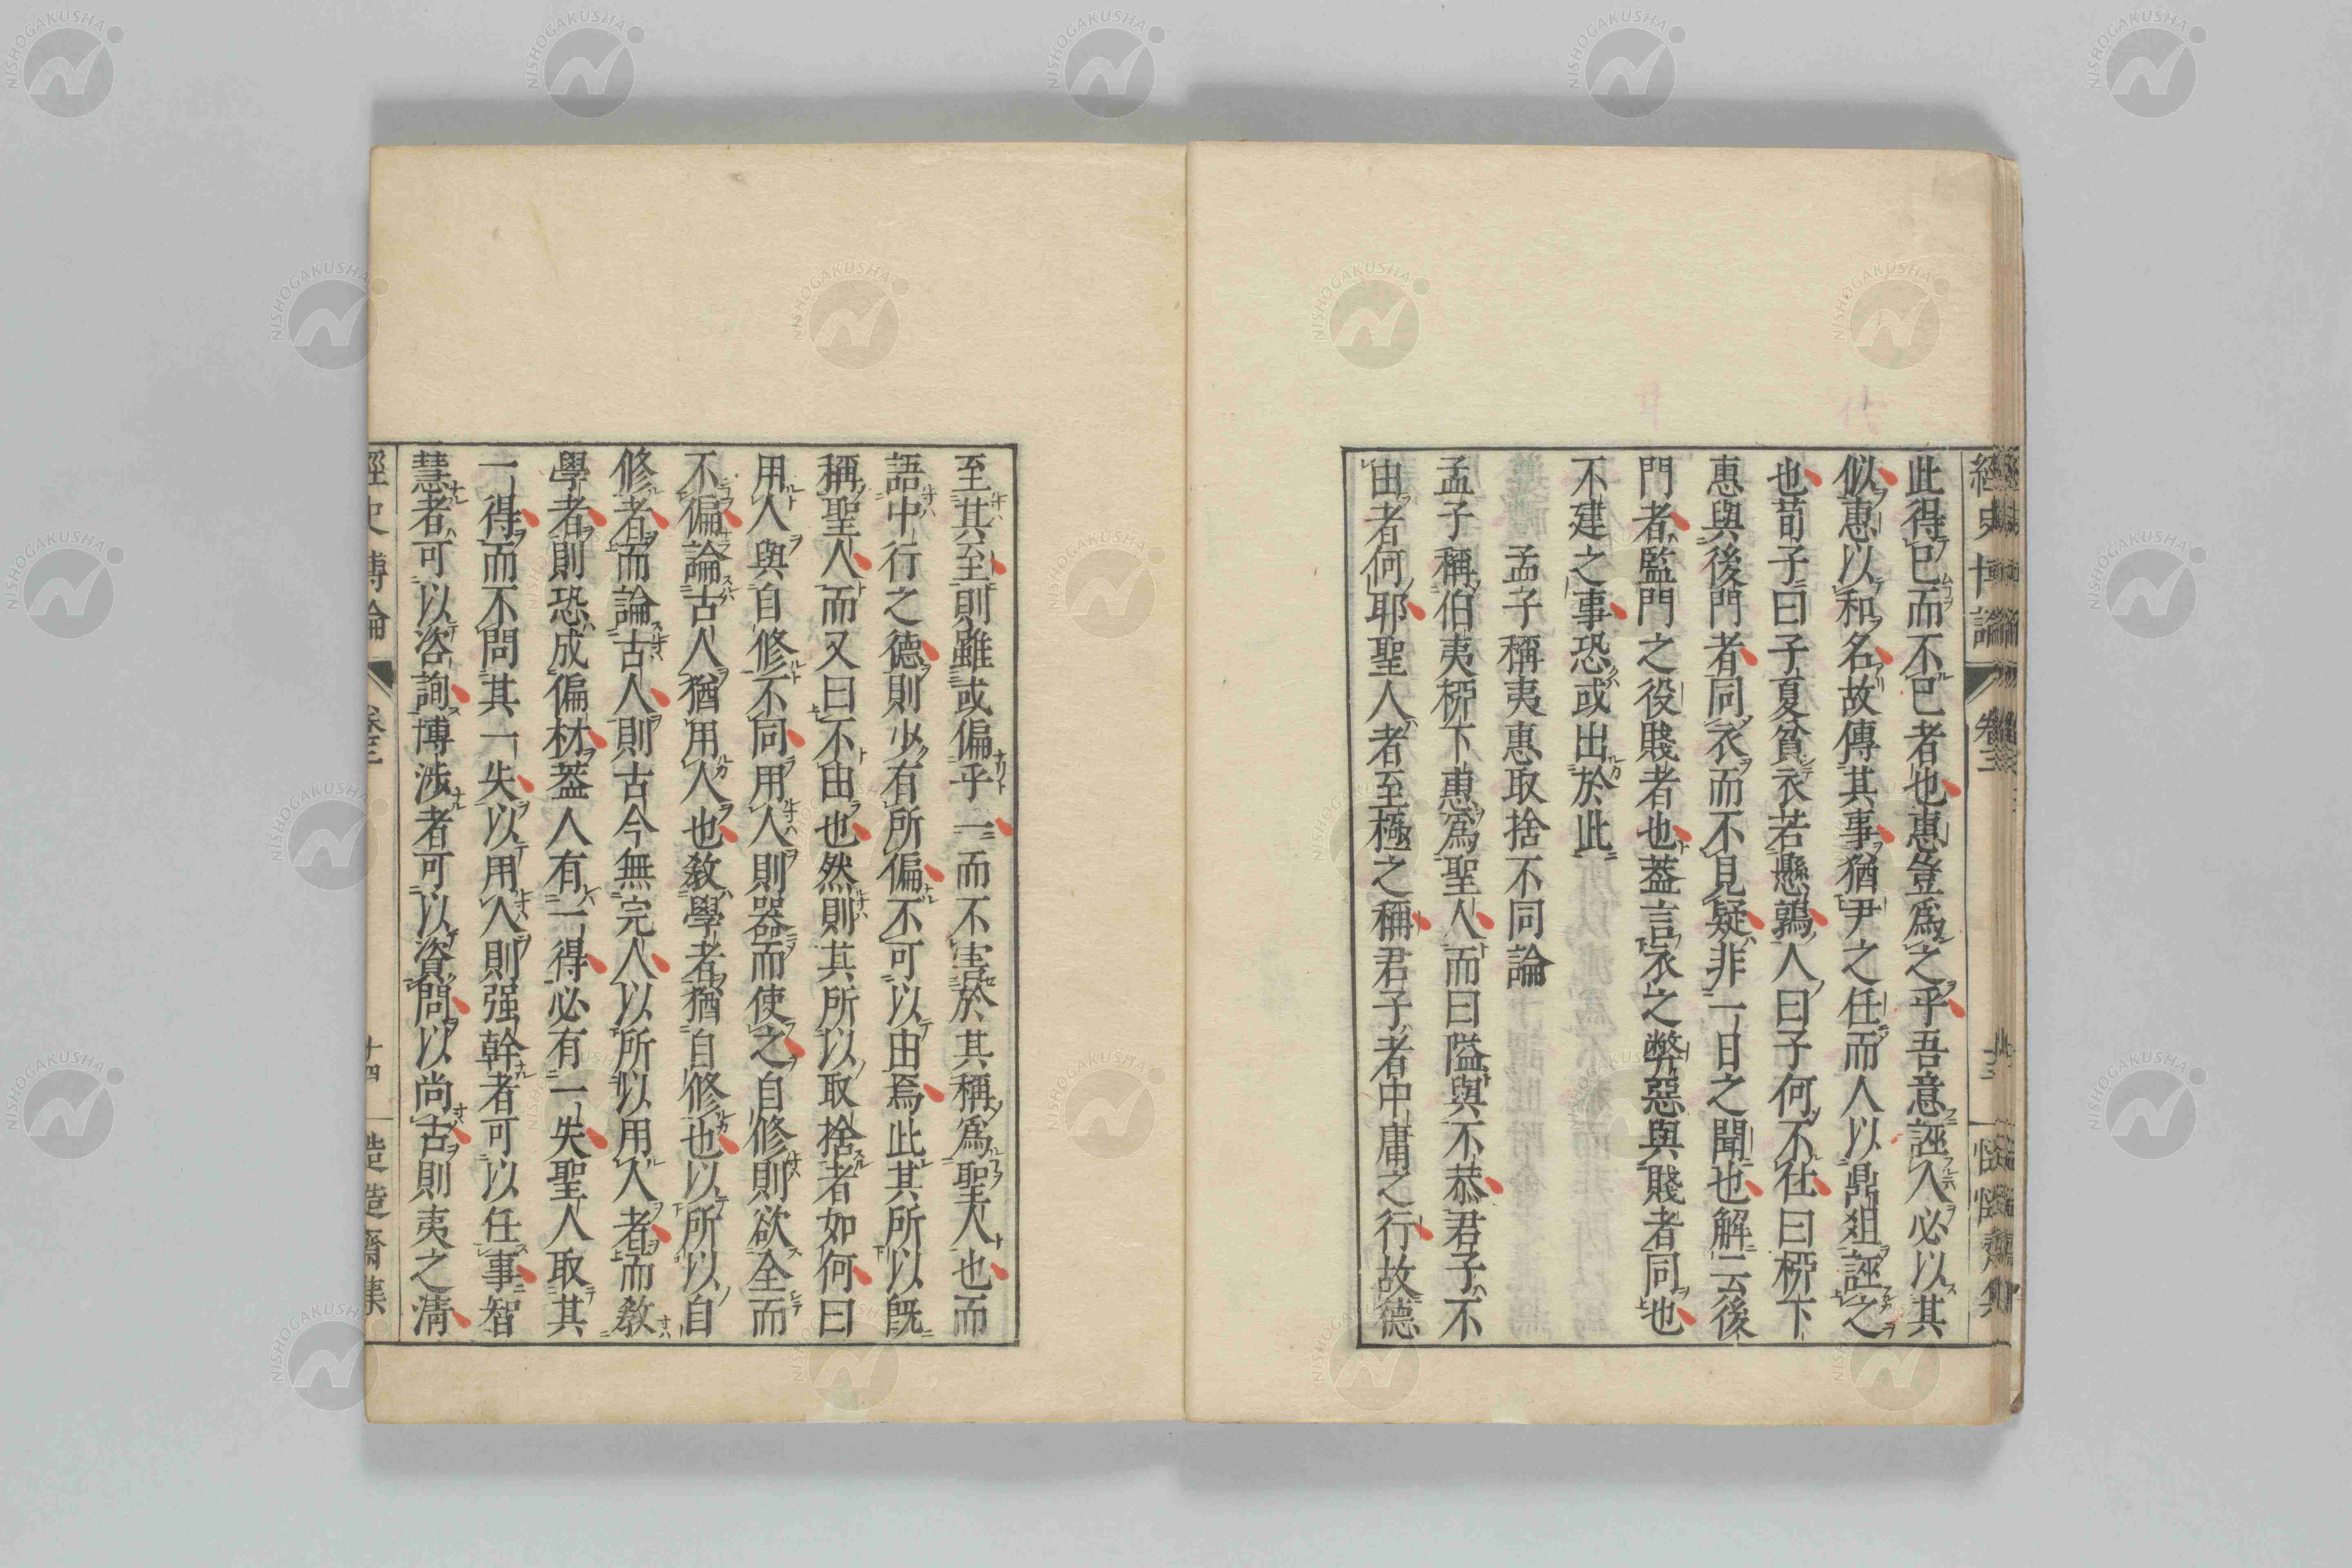 此得已而不已者也惠豈爲之乎吾意誣人必以其
似惠以和名故傳其事猶尹之任而人以鼎俎誣之
也荀子曰子夏貧衣若懸鶉人曰子何不仕曰桺下
惠與後門者同衣而不見疑非一日之聞也解云後
門者監門之役賤者也蓋言衣之弊惡與賤者同也
不建之事恐或出於此
孟子稱夷惠取捨不同論
孟子稱伯夷桺下惠爲聖人而曰隘與不恭君子不
由者何耶聖人者至極之稱君子者中庸之行故德
至其至則雖或偏乎一而不害於其稱爲聖人也而
語中行之德則少有所偏不可以由焉此其所以既
稱聖人而又曰不由也然則其所以取捨者如何曰
用人與自修不同用人則器而使之自修則欲全而
不偏論古人猶用人也教學者猶自修也以所以自
修者而論古人則古今無完人以所以用人者而教
學者則恐成偏材蓋人有一得必有一失聖人取其
一得而不問其一失以用人則强幹者可以任事智
慧者可以咨詢博涉者可以資問以尚古則夷之清
經史博論
卷三
十四
造造齋集
NISHOGAKUSHA